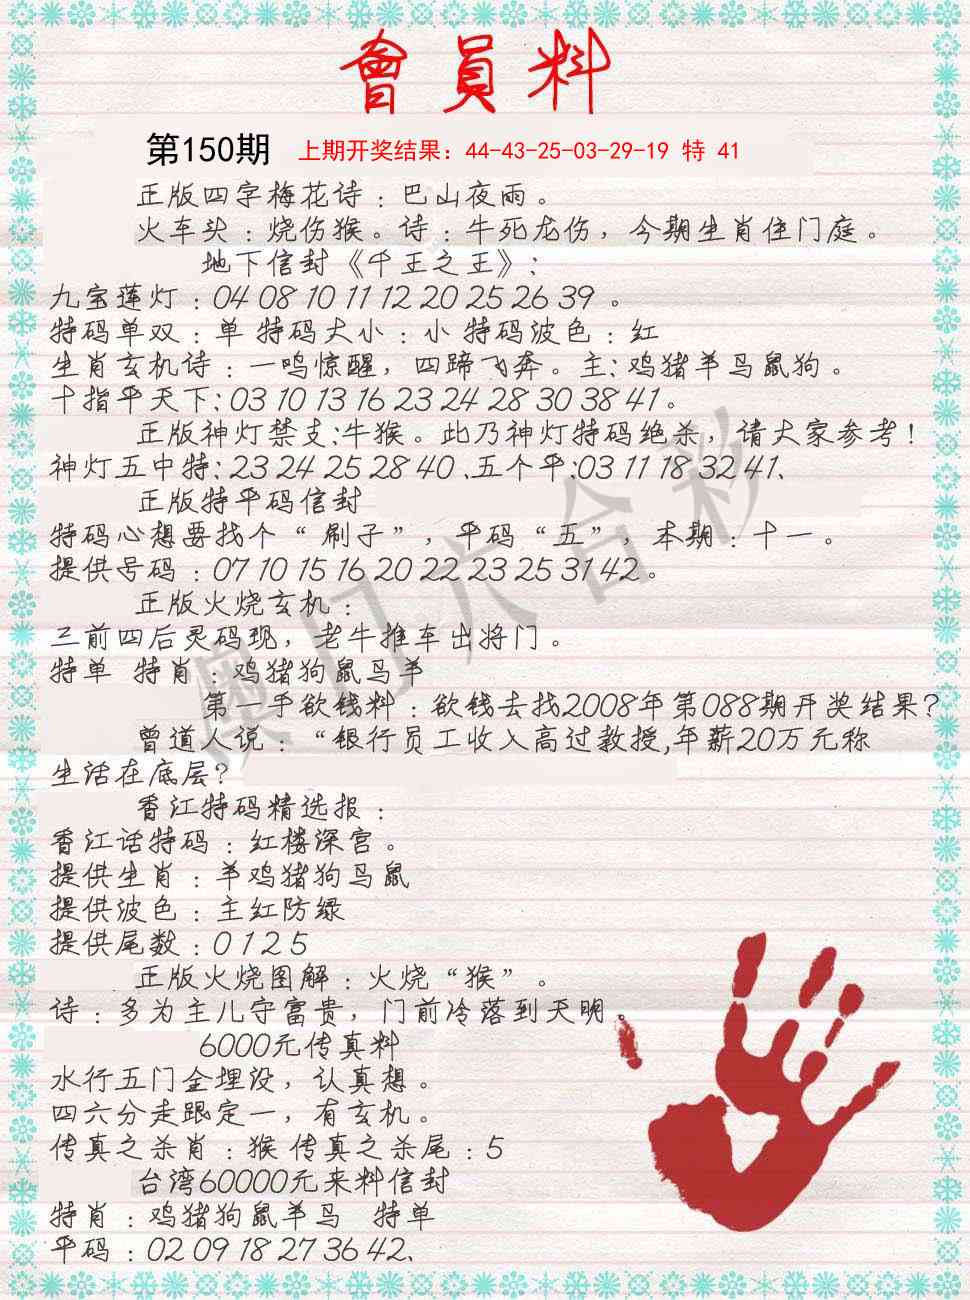 會員料
第150期 上期开奖结果：44-43-25-03-29-19 特 41
正版四字梅花诗：巴山夜雨。
火车头：烧伤猴。诗：牛死龙伤，今期生肖住门庭。
地下信封《千王之王》：
九宝莲灯：04 08 10 11 12 20 25 26 39 。
特码单双：单 特码大小：小 特码波色：红
生肖玄机诗：一鸣惊醒，四蹄飞奔。主：鸡猪羊马鼠狗。
十指平天下：03 10 13 16 23 24 28 30 38 41。
正版神灯禁支：牛猴。此乃神灯特码绝杀，请大家参考！
神灯五中特：23 24 25 28 40 、五个平：03 11 18 32 41、
正版特平码信封
特码心想要找个“刷子”，平码“五”，本期：十一。
提供号码：07 10 15 16 20 22 23 25 31 42。
正版火烧玄机：
三前四后灵码现，老牛推车出将门。
特单 特肖：鸡猪狗鼠马羊
第一手欲钱料：欲钱去找2008年第088期开奖结果？
曾道人说：“银行员工收入高过教授，年薪20万元称
生活在底层？
香江特码精选报：
香江话特码：红楼深宫。
提供生肖：羊鸡猪狗马鼠
提供波色：主红防绿
提供尾数：0 1 2 5
正版火烧图解：火烧“猴”。
诗：多为主儿守富贵，门前冷落到天明。
6000元传真料
水行五门金埋设，认真想。
四六分走跟定一，有玄机。
传真之杀肖：猴 传真之杀尾：5
台湾60000元来料信封
特肖：鸡猪狗鼠羊马 特单
平码：02 09 18 27 36 42、
澳门六合彩